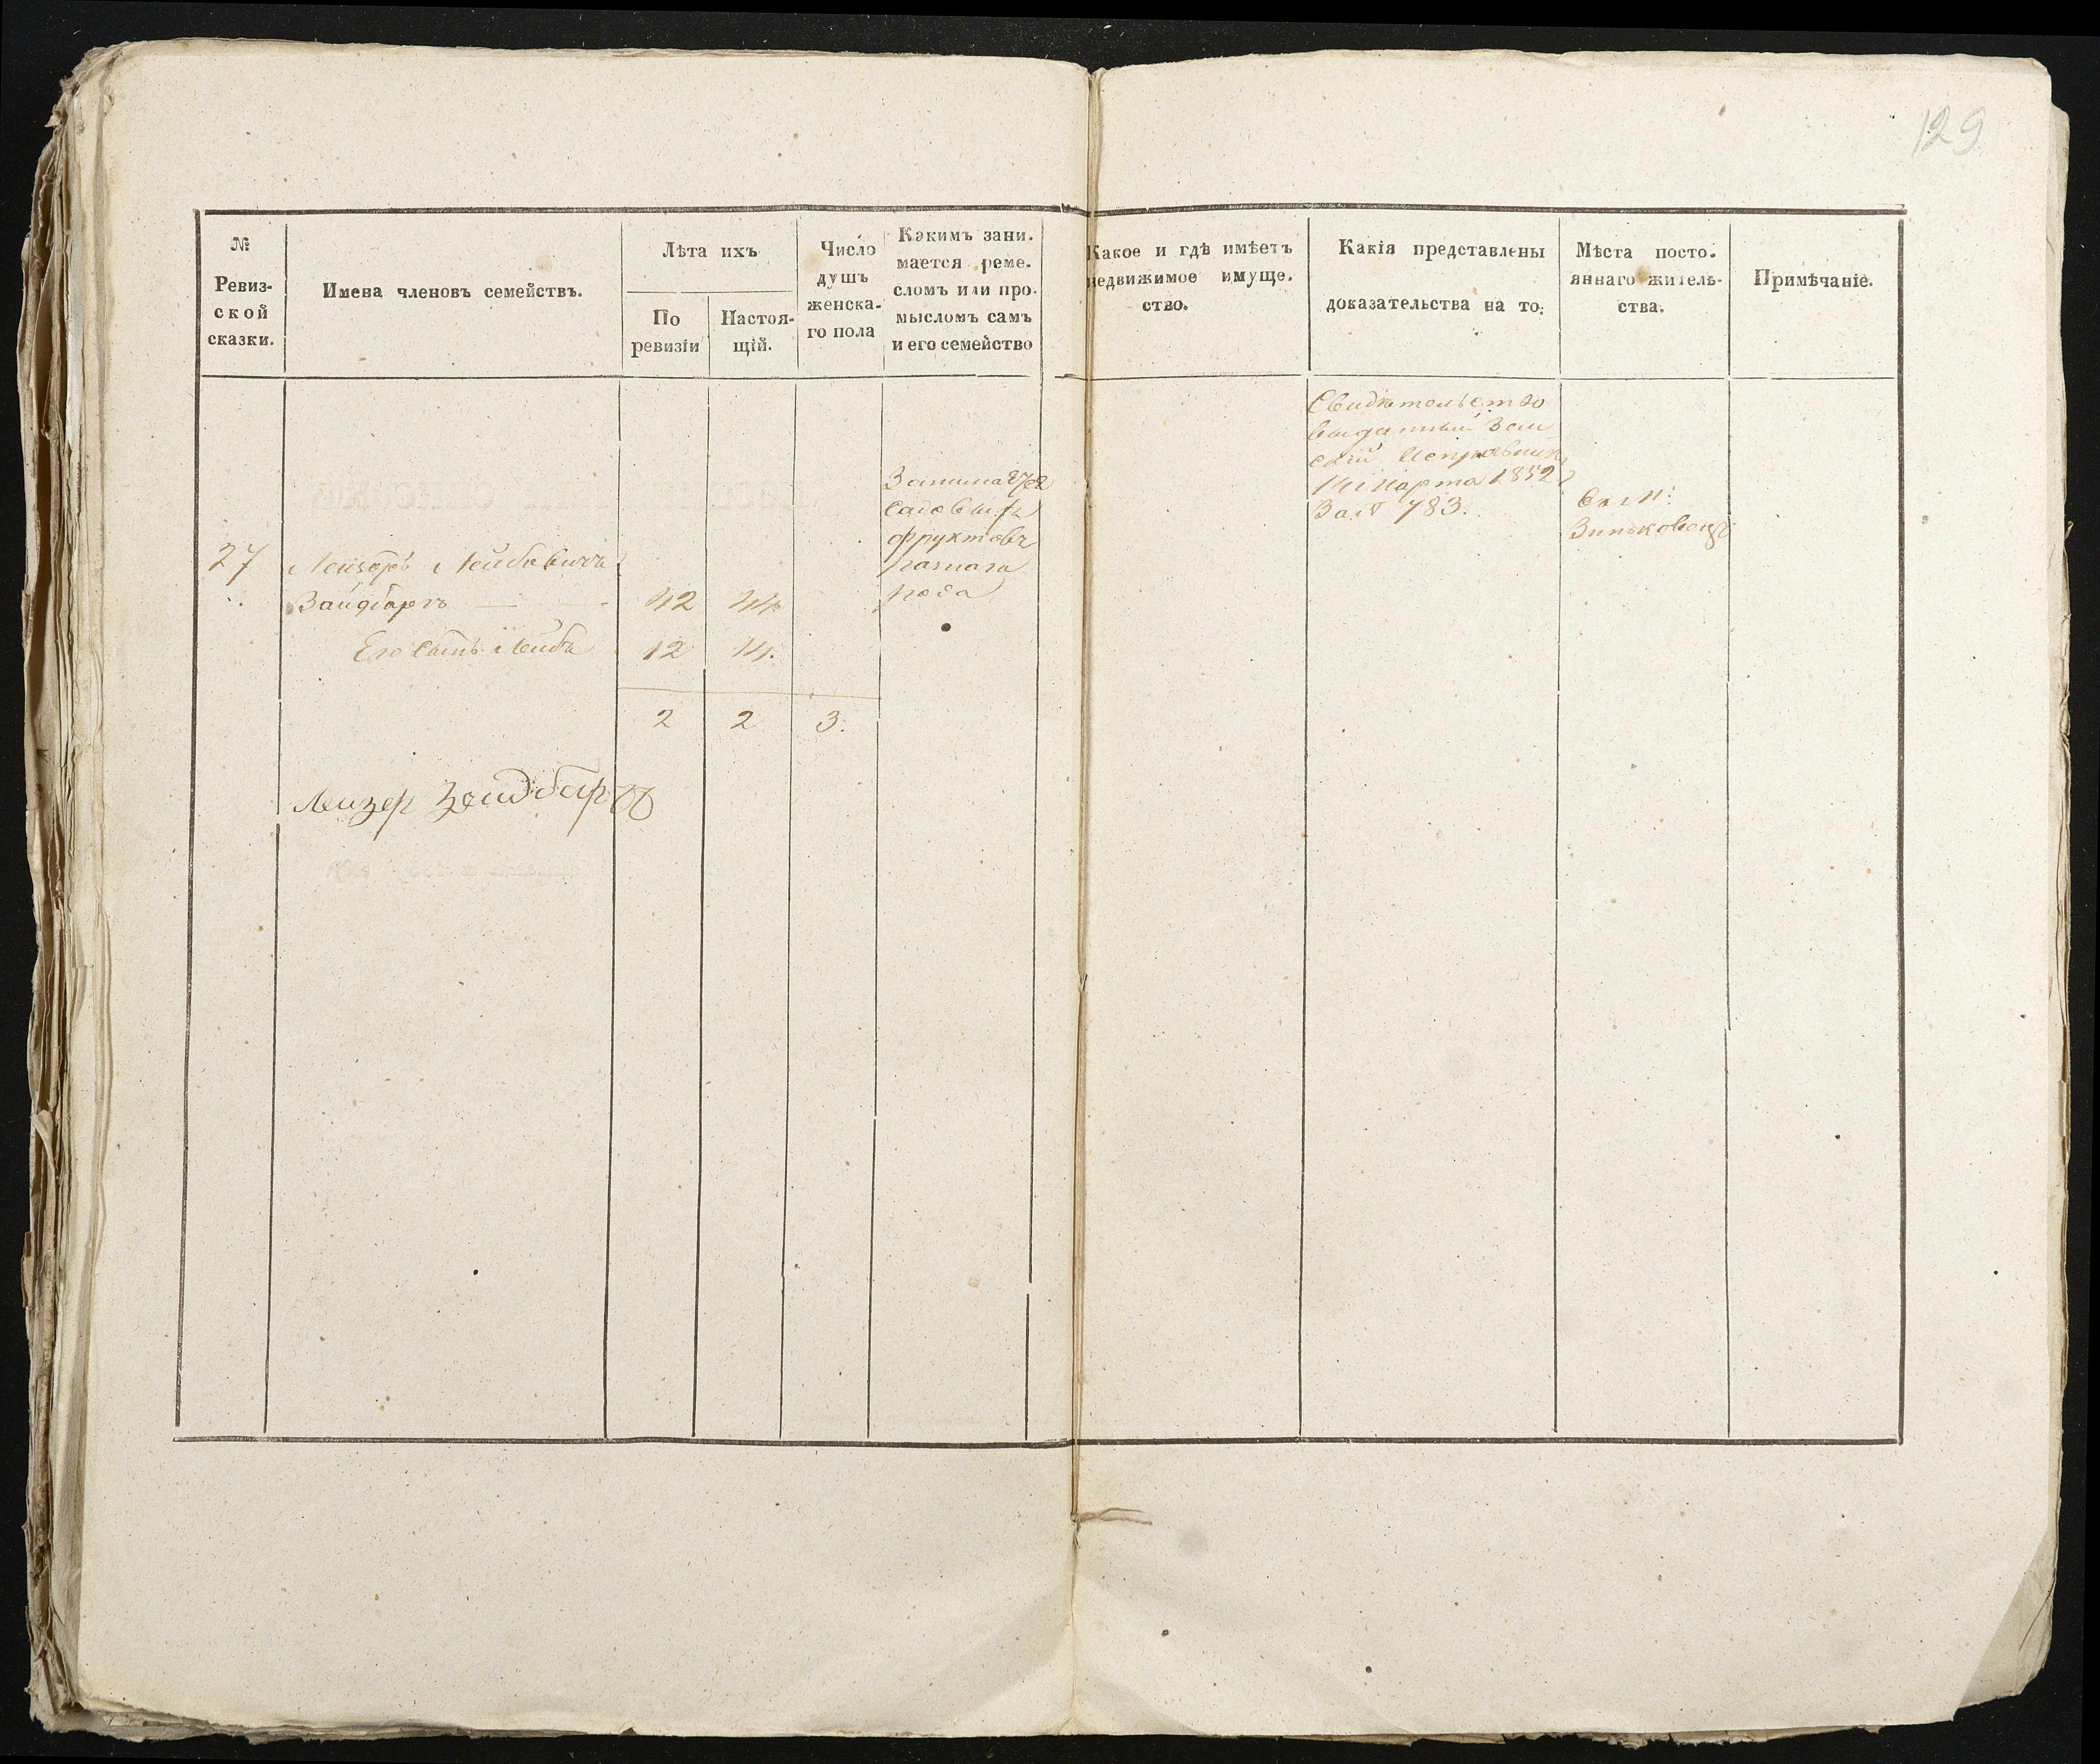 129
№
Ревиз-
ской
сказки.
Имена членовъ семействъ.
Лѣта ихъ
По
ревизіи
Настоя-
щій.
Число
душъ
женска-
го пола
Какимъ зани-
мается реме-
сломъ или про-
мысломъ самъ
и его семейство
Какое и гдѣ имѣетъ
недвижимое имуще-
ство.
Какія представлены
доказательства на то.
Мѣста посто-
яннаго житель-
ства.
Примѣчаніе.
27 Лейзоръ Лейбовичъ
Зайдбаргъ 42 44
Его Сынъ Лейба 12 14.
2 2 3.
фруктовъ
рода
Свидѣтельство
Исправник
14 Марта 1852
За № 783.
Въ м:
Лейзер Зейдбарг